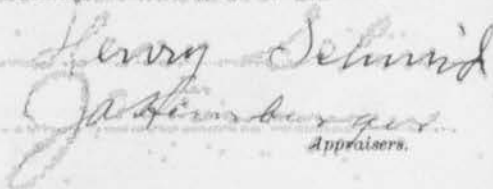 Henry Schmid
J A Heimburger
Appraisers.